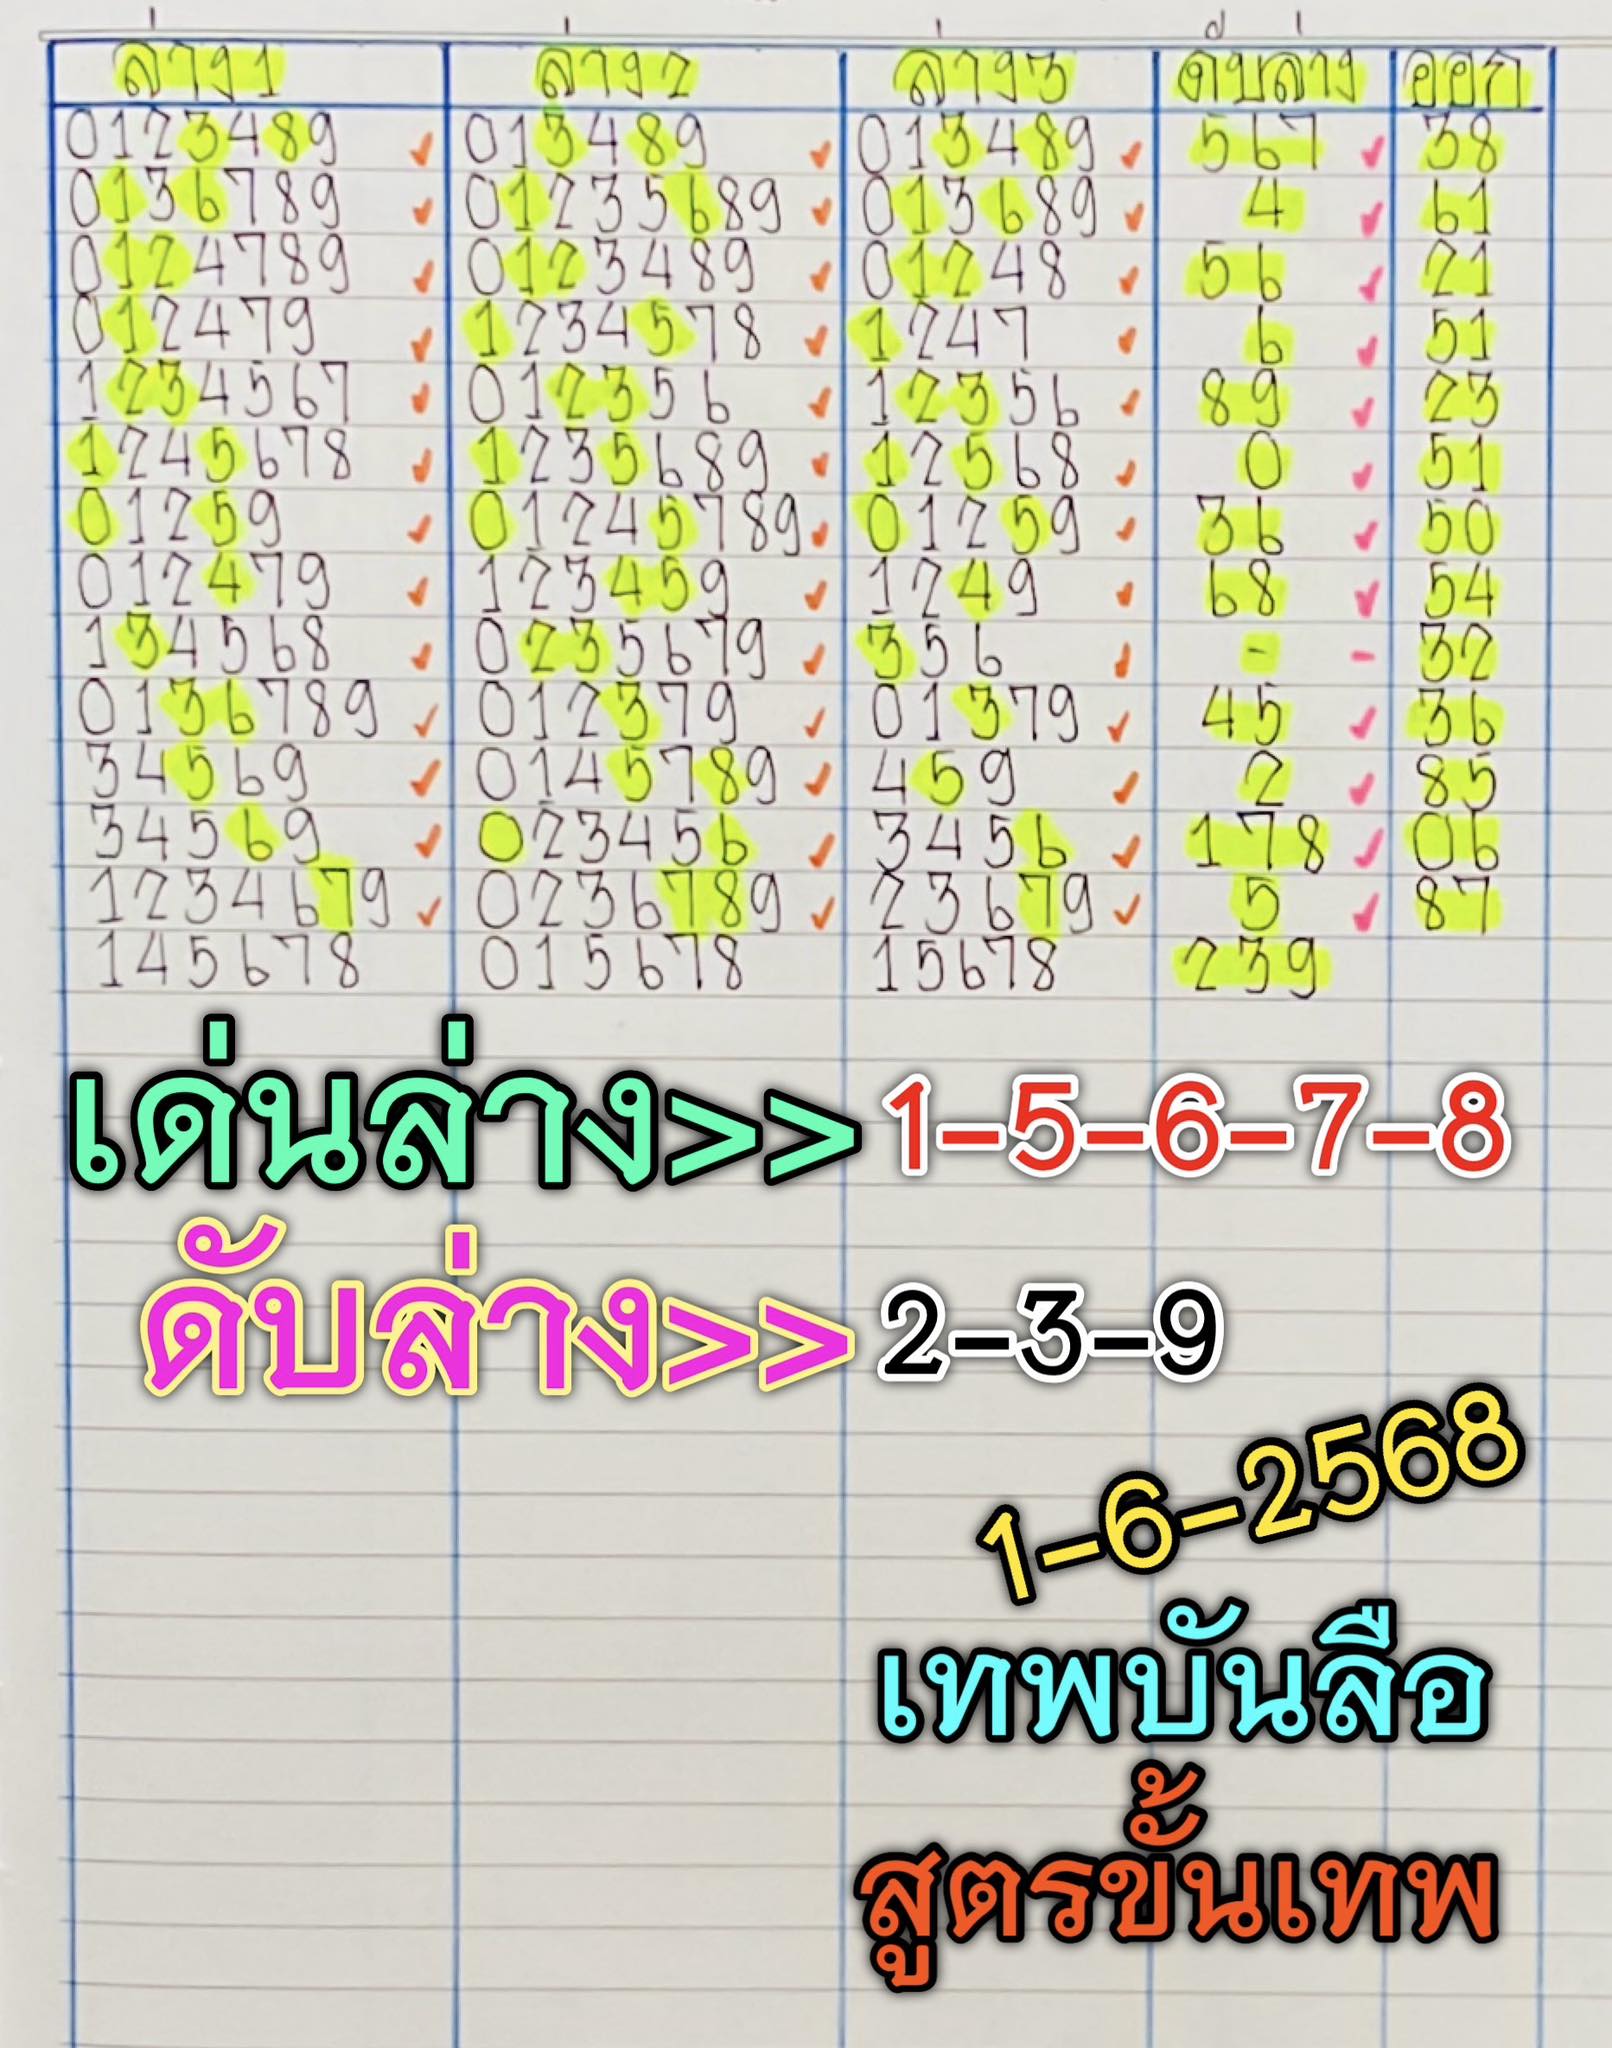 ล่าง1 ล่าง2 ล่าง3 ดับล่าง ออก
0123489 013489 013489 567 38
0136789 01235689 013689 4 61
0124789 0123489 01248 56 21
012479 1234578 1247 6 51
1234567 012356 12356 89 23
1245678 1235689 12568 0 51
01259 01245789 01259 36 50
012479 123459 1249 68 54
134568 0235679 356 - - 32
0136789 012379 01379 45 36
34569 0145789 459 2 85
34569 023456 3456 178 06
1234679 0236789 23679 5 87
145678 015678 15678 239
เด่นล่าง>> 1-5-6-7-8
ดับล่าง>> 2-3-9
1-6-2568
เทพบันลือ
สูตรขั้นเทพ